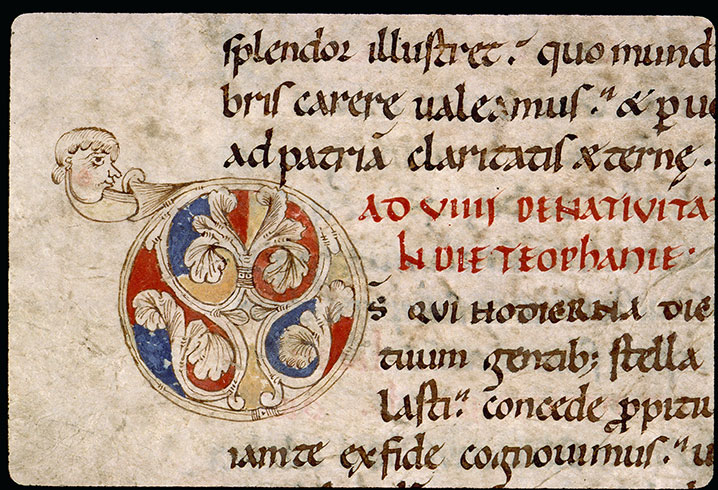 splendor illustret. quo mund
bris carere ualeamus. & p̱ ue
ad patriā claritatis æternę.
AD VIIII DE NATIVITA
IN DIE TEOPHANIE.
D̄S QUI HODIERNA DIE
tuum gentib; stella
lasti. concede p̱pitu
iam te ex fide cognouimus. u